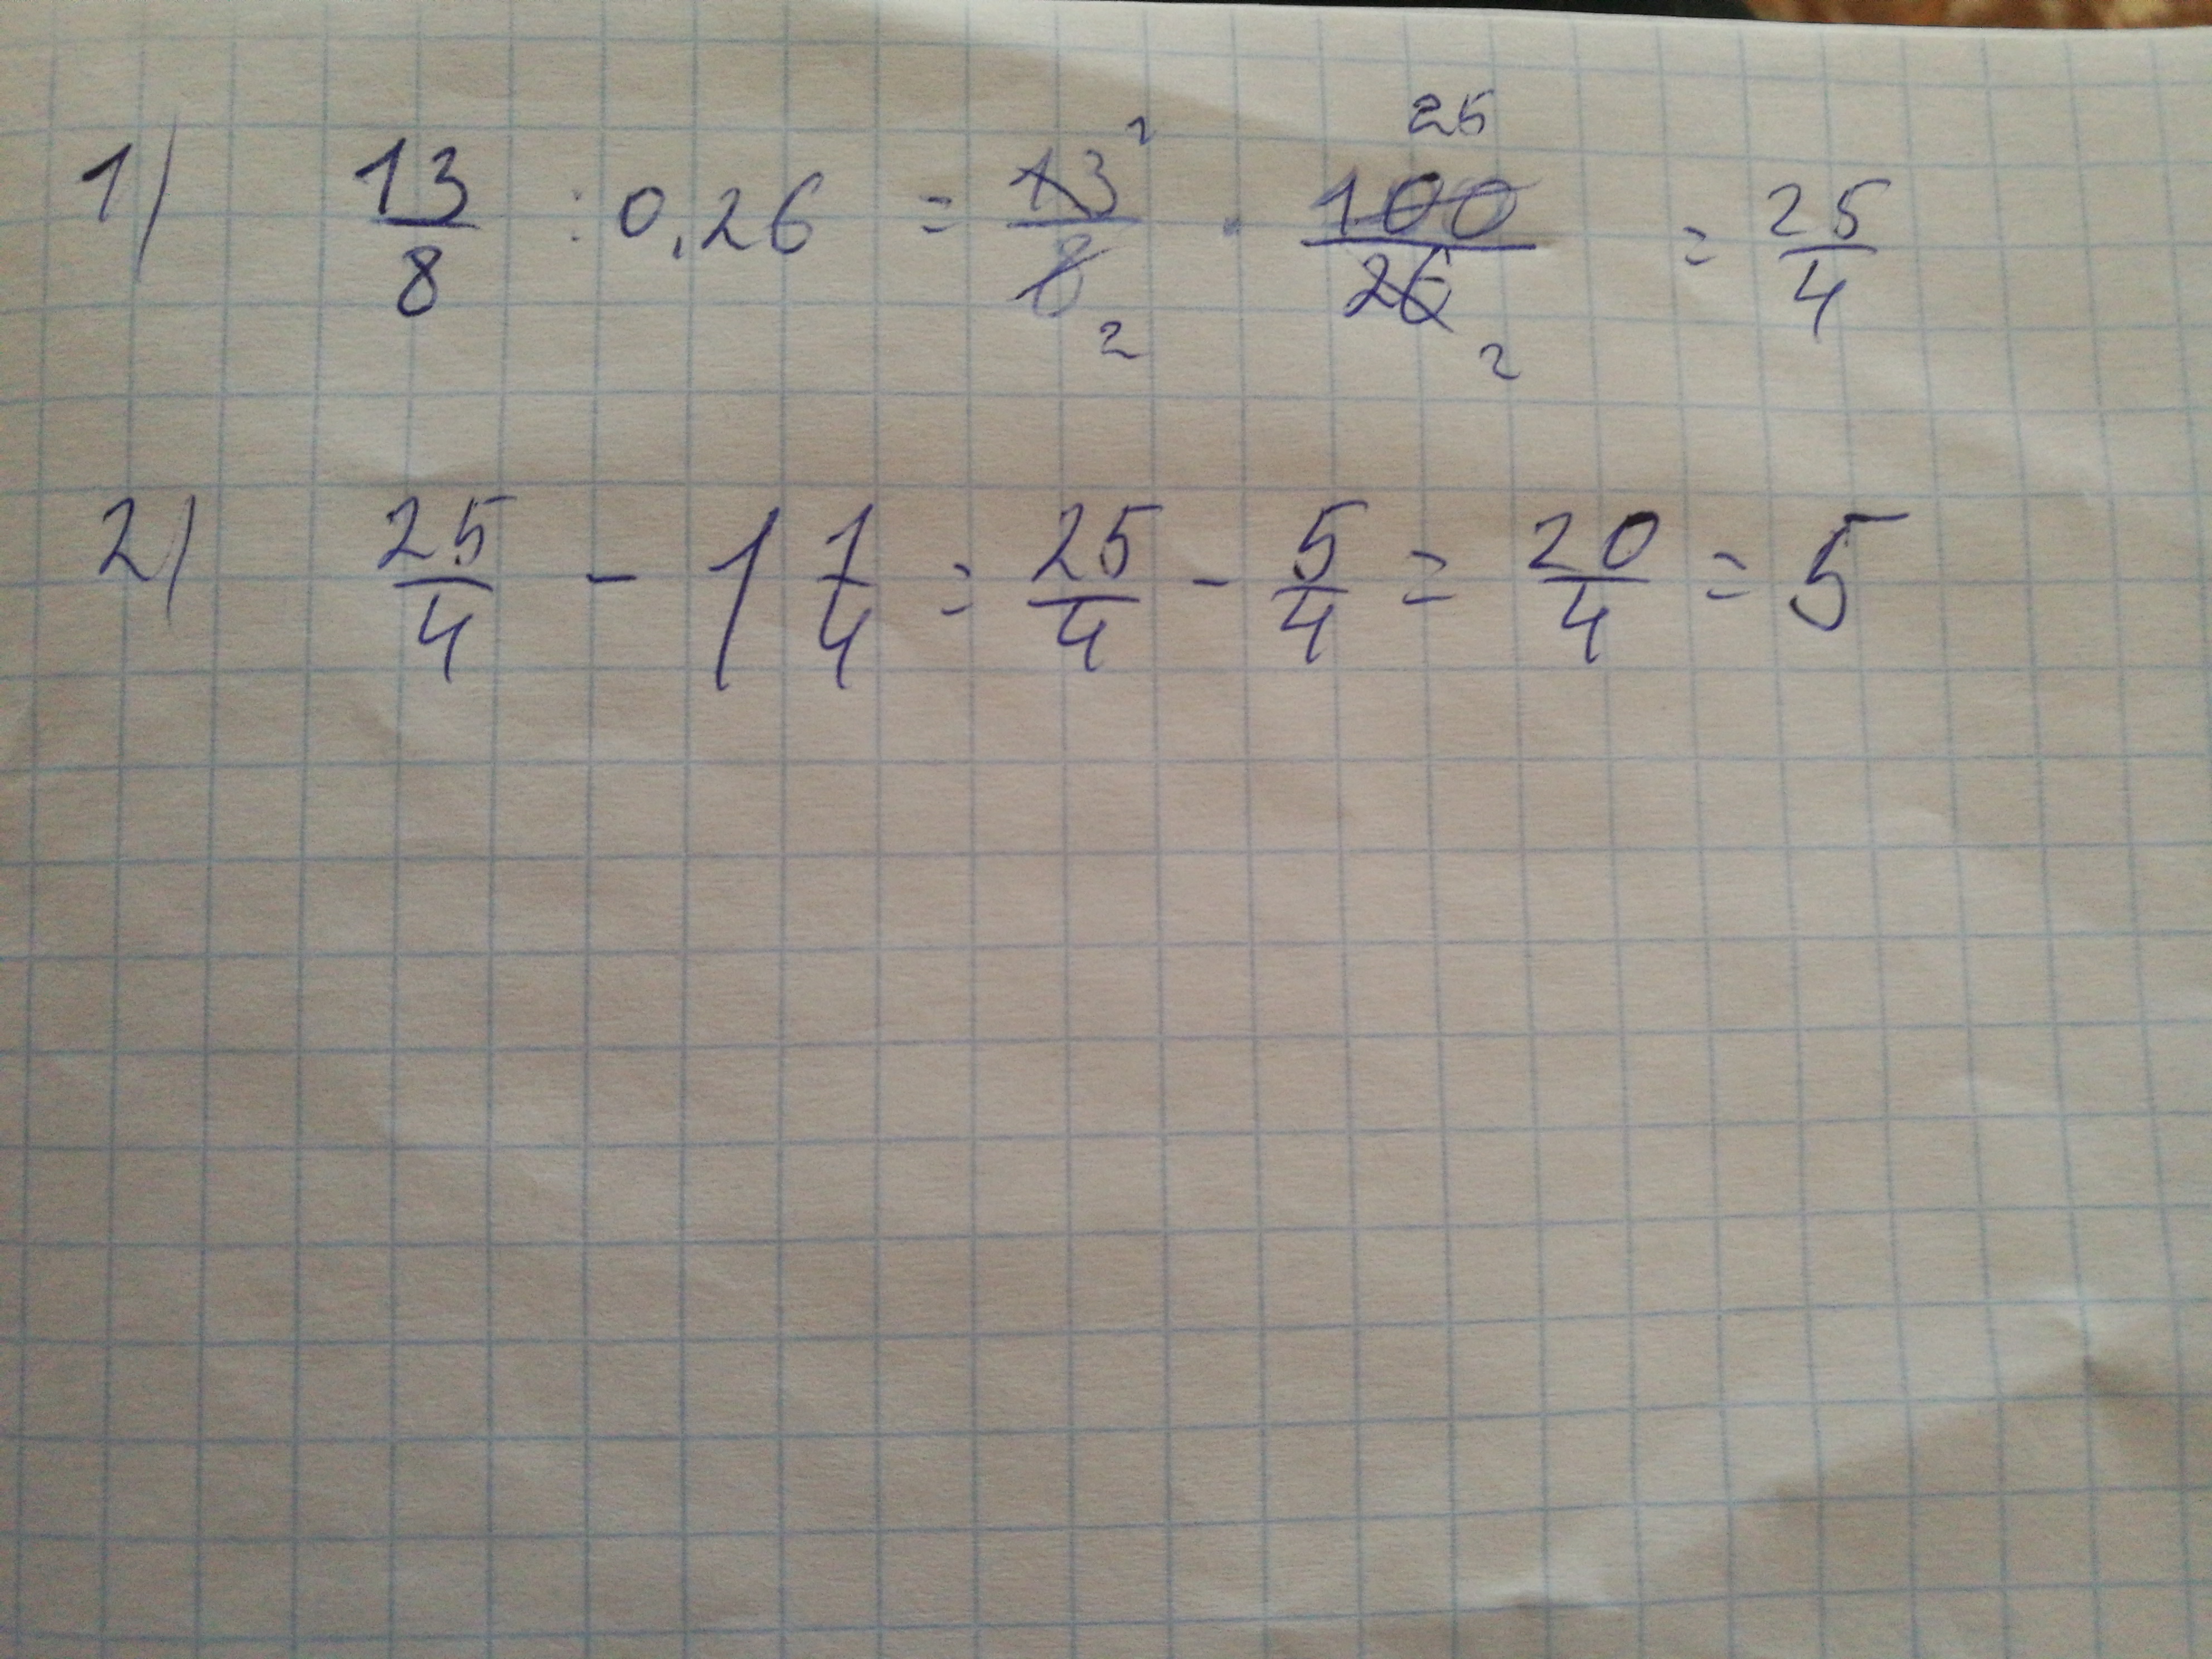 1) 13/8 : 0,26 = 13/8 · 100/26 = 25/4
2) 25/4 - 1 1/4 = 25/4 - 5/4 = 20/4 = 5